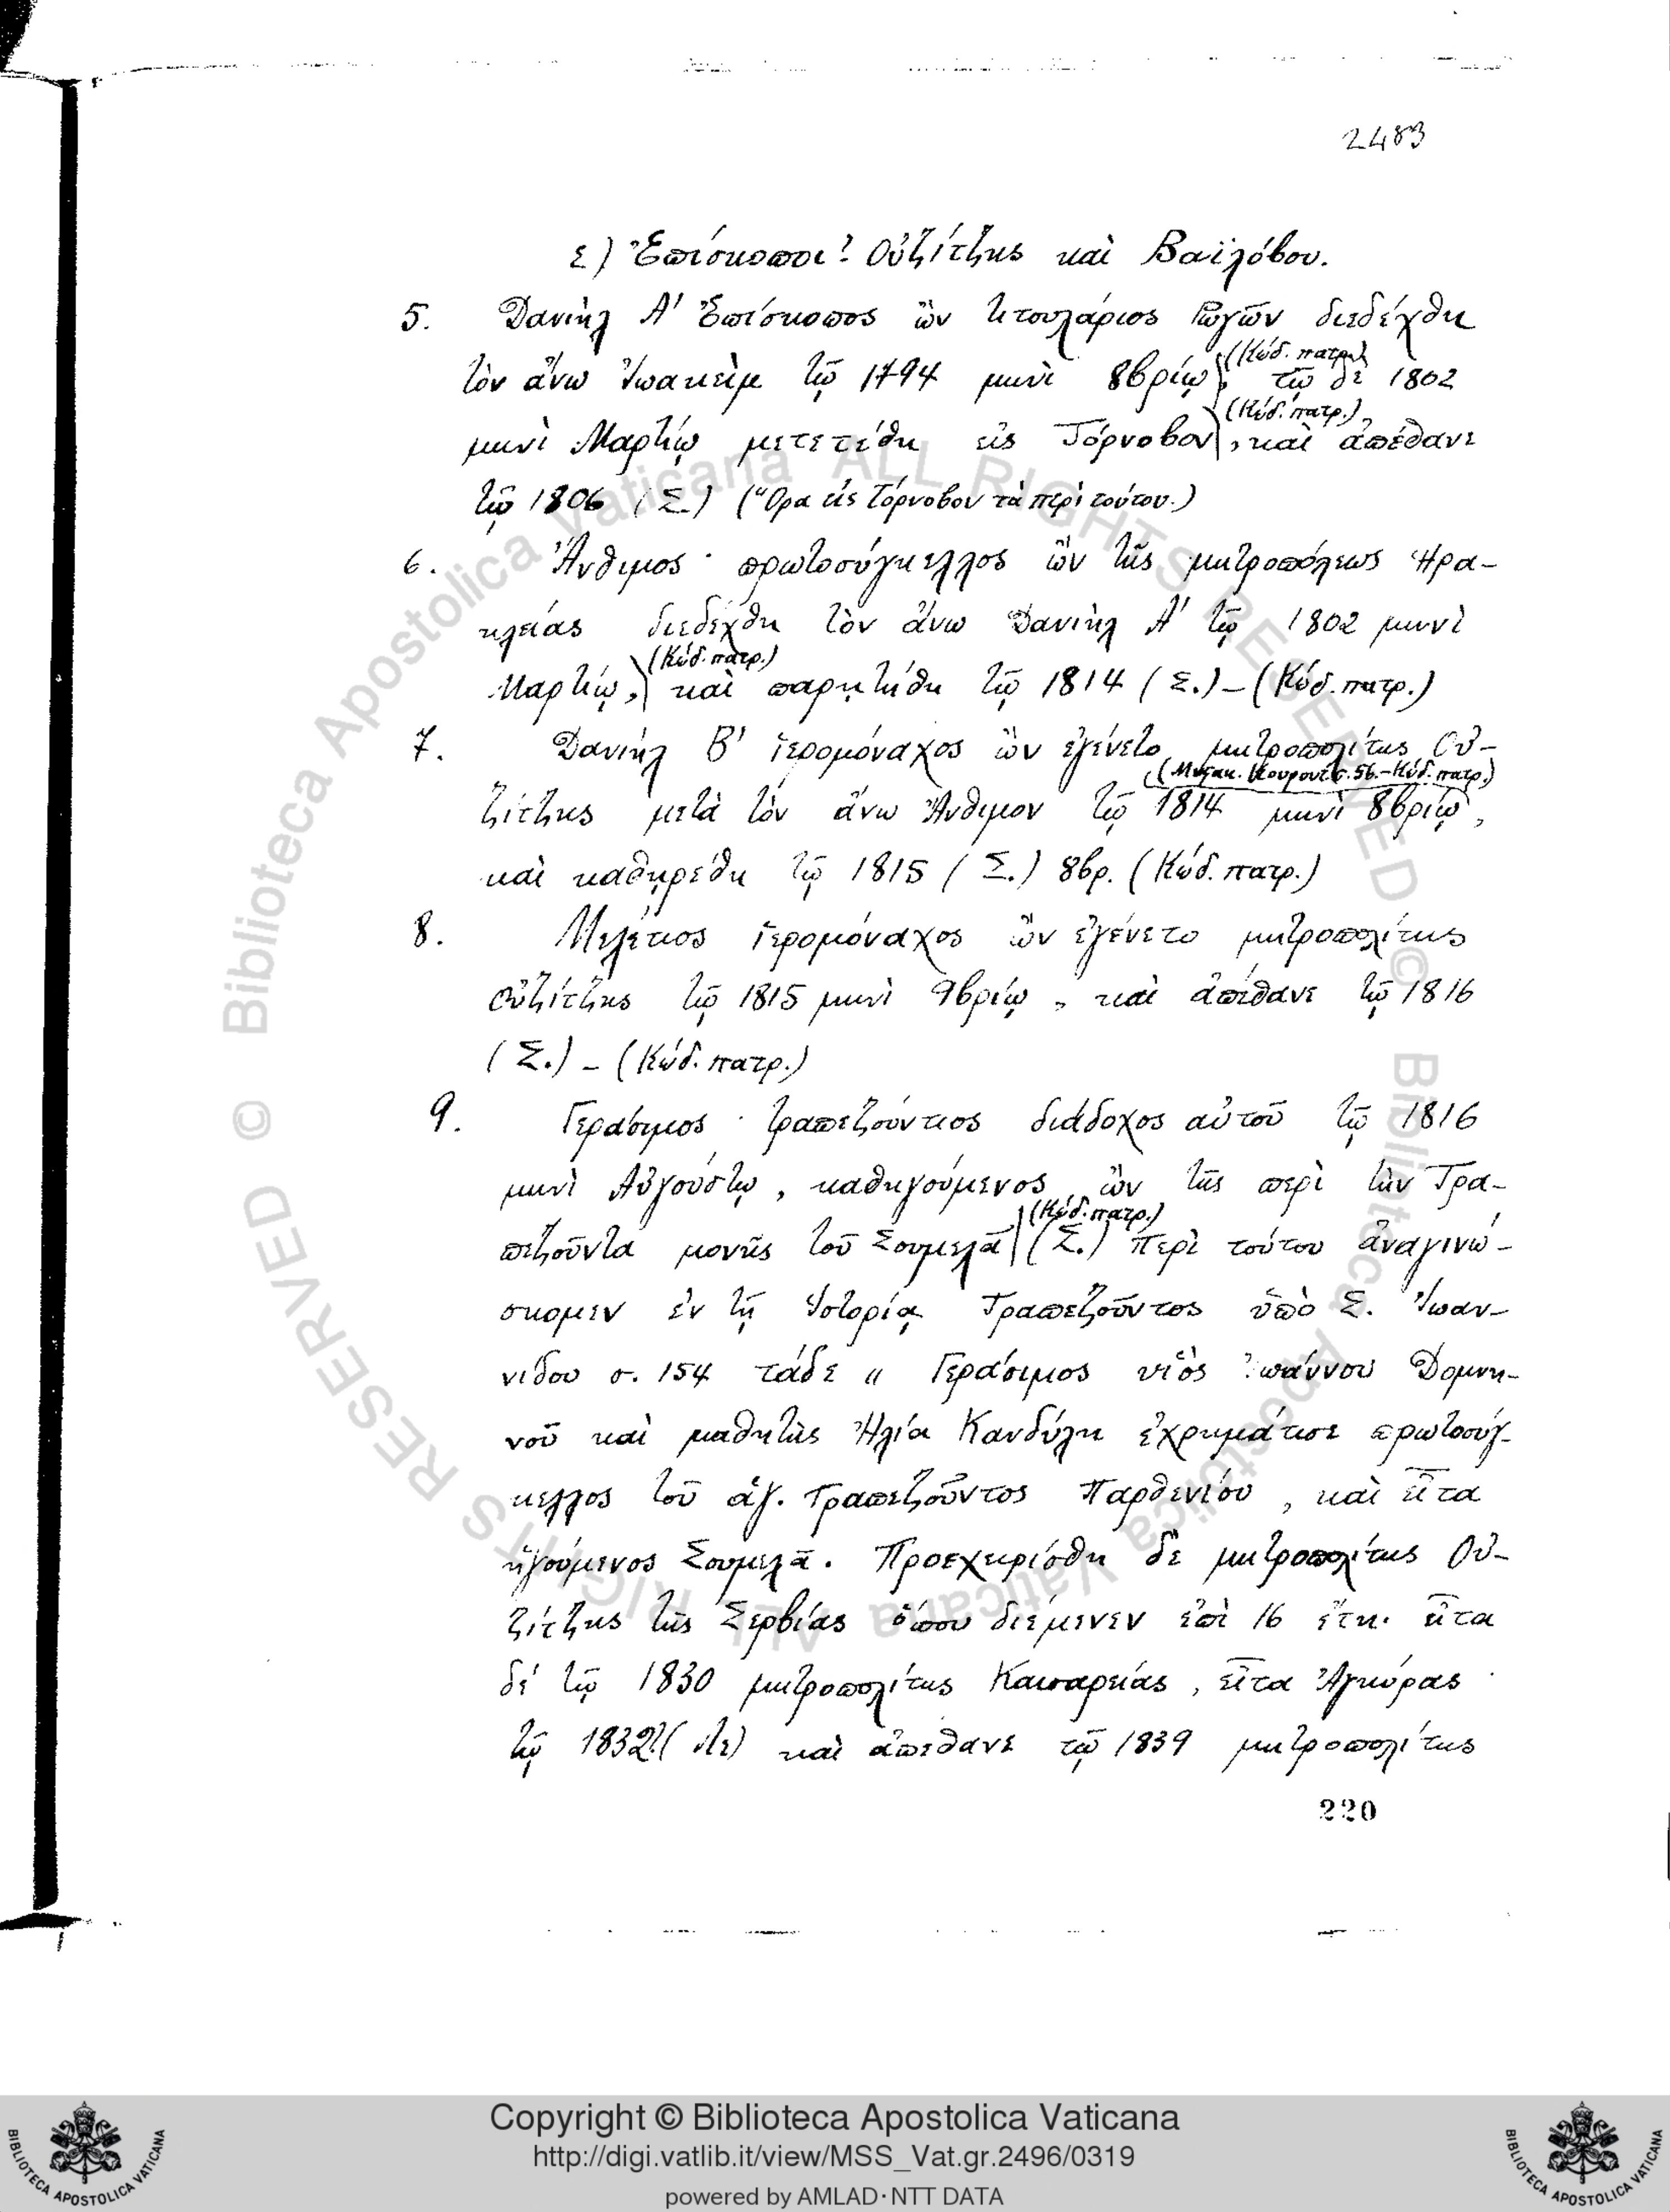 2483
ε) Ἐπίσκοποι? Οὐζίτζης καὶ Βαϊλόβου.
5. Δανιὴλ Α' Ἐπίσκοπος ὢν τιτουλάριος Ῥωγῶν διεδέχθη
(Κώδ. πατρ.)
τὸν ἄνω Ἰωακεὶμ τῷ 1794 μηνὶ 8βρίῳ, τῷ δὲ 1802
(Κώδ. πατρ.)
μηνὶ Μαρτίῳ μετετέθη εἰς Τόρνοβον, καὶ ἀπέθανε
τῷ 1806 (Σ.) (Ὅρα εἰς Τόρνοβον τὰ περὶ τούτου.)
6. Ἄνθιμος · πρωτοσύγκελλος ὢν τῆς μητροπόλεως Ἡρα-
κλείας διεδέχθη τὸν ἄνω Δανιὴλ Α' τῷ 1802 μηνὶ
(Κώδ. πατρ.)
Μαρτίῳ, καὶ παρῃτήθη τῷ 1814 (Σ.) – (Κώδ. πατρ.)
7. Δανιὴλ Β' ἱερομόναχος ὢν ἐγένετο μητροπολίτης Οὐ-
σ. 56. – Κώδ. πατρ.)
ζίτζης μετὰ τὸν ἄνω Ἄνθιμον τῷ 1814 μηνὶ 8βρίῳ,
καὶ καθῃρέθη τῷ 1815 (Σ.) 8βρ. (Κώδ. πατρ.)
8. Μελέτιος ἱερομόναχος ὢν ἐγένετο μητροπολίτης
Οὐζίτζης τῷ 1815 μηνὶ 9βρίῳ, καὶ ἀπέθανε τῷ 1816
(Σ.) – (Κώδ. πατρ.)
9. Γεράσιμος · τραπεζούντιος διάδοχος αὐτοῦ τῷ 1816
μηνὶ Αὐγούστῳ, καθηγούμενος ὢν τῆς περὶ τὴν Τρα-
(Κώδ. πατρ.)
πεζοῦντα μονῆς τοῦ Σουμελᾶ (Σ.) Περὶ τούτου ἀναγινώ-
σκομεν ἐν τῇ Ἱστορίᾳ Τραπεζοῦντος ὑπὸ Σ. Ἰωαν-
νίδου σ. 154 τάδε „ Γεράσιμος υἱὸς Ἰωάννου Δομνη-
νοῦ καὶ μαθητὴς Ἠλία Κανδύλη ἐχρημάτισε πρωτοσύγ-
κελλος τοῦ ἁγ. Τραπεζοῦντος Παρθενίου, καὶ εἶτα
ἡγούμενος Σουμελᾶ. Προεχειρίσθη δὲ μητροπολίτης Οὐ-
ζίτζης τῆς Σερβίας ὅπου διέμενεν ἐπὶ 16 ἔτη· εἶτα
δὲ τῷ 1830 μητροπολίτης Καισαρείας, εἶτα Ἀγκύρας
τῷ 1832? καὶ ἀπέθανε τῷ 1839 μητροπολίτης
220
Copyright © Biblioteca Apostolica Vaticana
http://digi.vatlib.it/view/MSS_Vat.gr.2496/0319
powered by AMLAD·NTT DATA